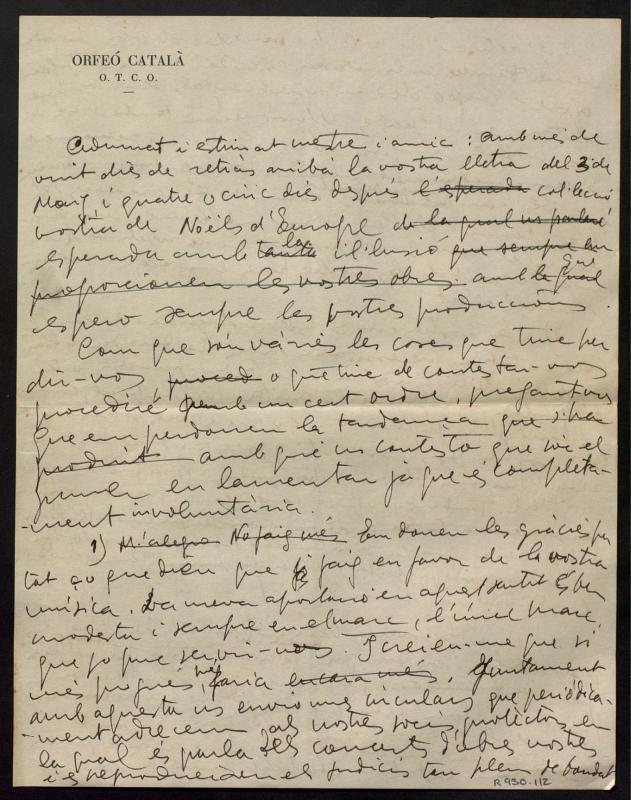 ORFEÓ CATALÀ
O. T. C. O.
Admirat i estimat mestre i amic: amb més de
vint dies de retràs arribà la vostra lletra del 3 de
Març i quatre o cinc dies després l'esperada col·lecció
vostra de Noëls d'Europe de la qual us parlaré
esperada amb tanta la il·lusió que sempre em
proporcionen les vostres obres amb la qual que
espero sempre les vostres produccions.
Com que són vàries les coses que tinc per
dir-vos, proced o que tinc de contestar-vos
procediré amb un cert ordre, pregant-vos
que em perdoneu la tardança que s'ha
produït amb què us contesto que sóc el
primer en lamentar ja que és completa-
-ment involuntària.
1) M'alegra No faig més Em doneu les gràcies per
tot ço que dieu que jo faig en favor de la vostra
música. La meva aportació en aquest sentit és ben
modesta i sempre en el marc, l'únic marc,
que jo puc servir-vos. I creieu-me que si
més pogués, més faria encara més. Juntament
amb aquesta us envio unes circulars que periòdica-
-ment adrecem als nostres socis protectors en
la qual es parla dels concerts d'obres vostres
i es reprodueixen els judicis tan plens de bondat
R 930.1/2